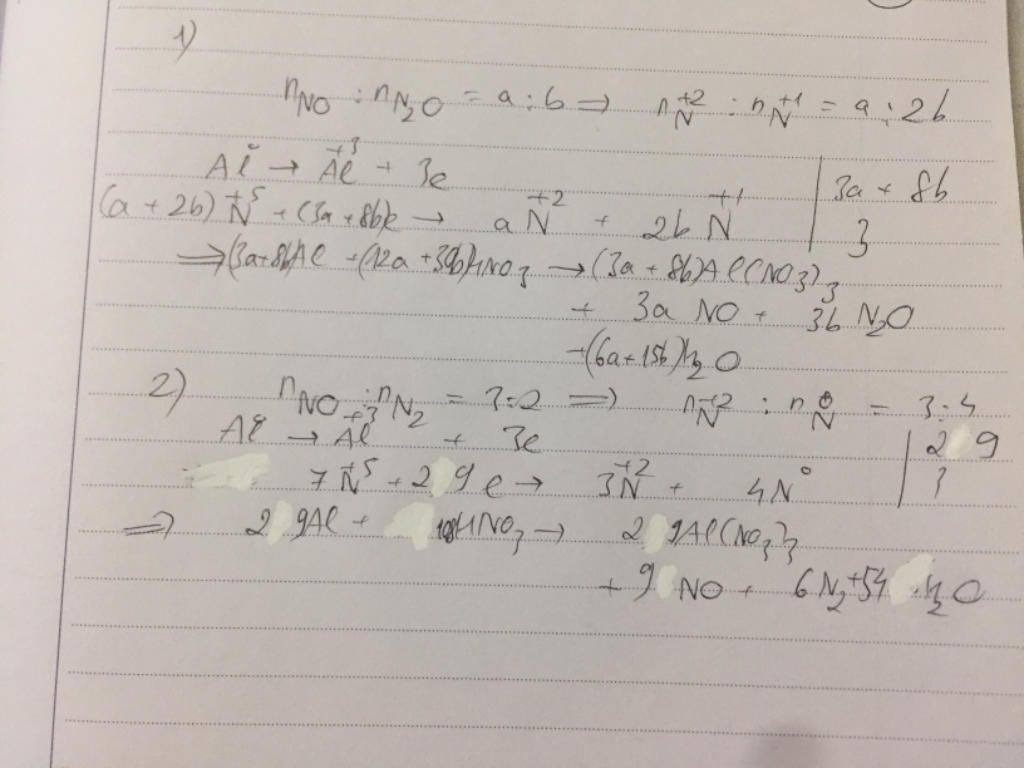 1)
nNO : nN₂O = a : b ⟹ nN⁺² : nN⁺¹ = a : 2b
Al⁰ → Al⁺³ + 3e | 3a + 8b
(a + 2b) N⁺⁵ + (3a + 8b)e → aN⁺² + 2bN⁺¹ | 3
⟹ (3a+8b)Al + (12a + 30b)HNO₃ → (3a + 8b)Al(NO₃)₃
+ 3a NO + 3b N₂O
+ (6a + 15b)H₂O
2) nNO : nN₂ = 3:2 ⟹ nN⁺² : nN⁰ = 3:4
Al⁰ → Al⁺³ + 3e | 2 9
7N⁺⁵ + 2 9 e → 3N⁺² + 4N⁰ | 3
⟹ 2 9Al + 108HNO₃ → 2 9Al(NO₃)₃
+ 9 NO + 6N₂ + 54 H₂O